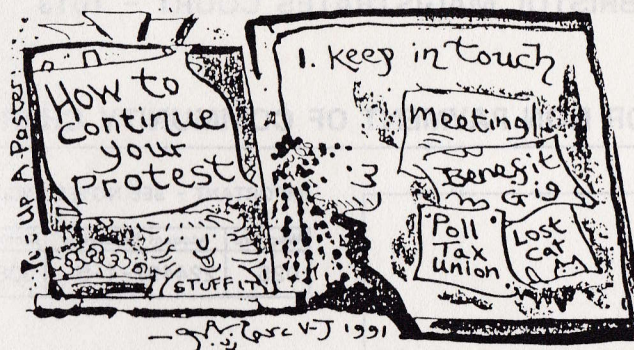 How to
continue
your
Protest
UP A Poster
STUFF IT
1. keep in touch
meeting!
Benefit
Gig
Poll
Tax
Union
Lost
cat
1991